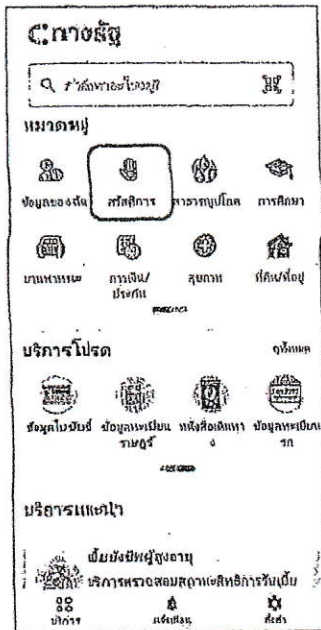 ทางรัฐ
กำลังหาอะไรอยู่?
หมวดหมู่
ข้อมูลของฉัน สวัสดิการ สาธารณูปโภค การศึกษา
ยานพาหนะ การเงิน/ สุขภาพ ที่ดิน/ที่อยู่
ประกัน
บริการโปรด ดูทั้งหมด
ข้อมูลใบขับขี่ ข้อมูลทะเบียน หนังสือเดินทา ข้อมูลทะเบียน
ราษฎร์ ง รถ
บริการแนะนำ
เบี้ยยังชีพผู้สูงอายุ
บริการตรวจสอบสถานะสิทธิการรับเบี้ย
บริการ แจ้งเตือน ตั้งค่า